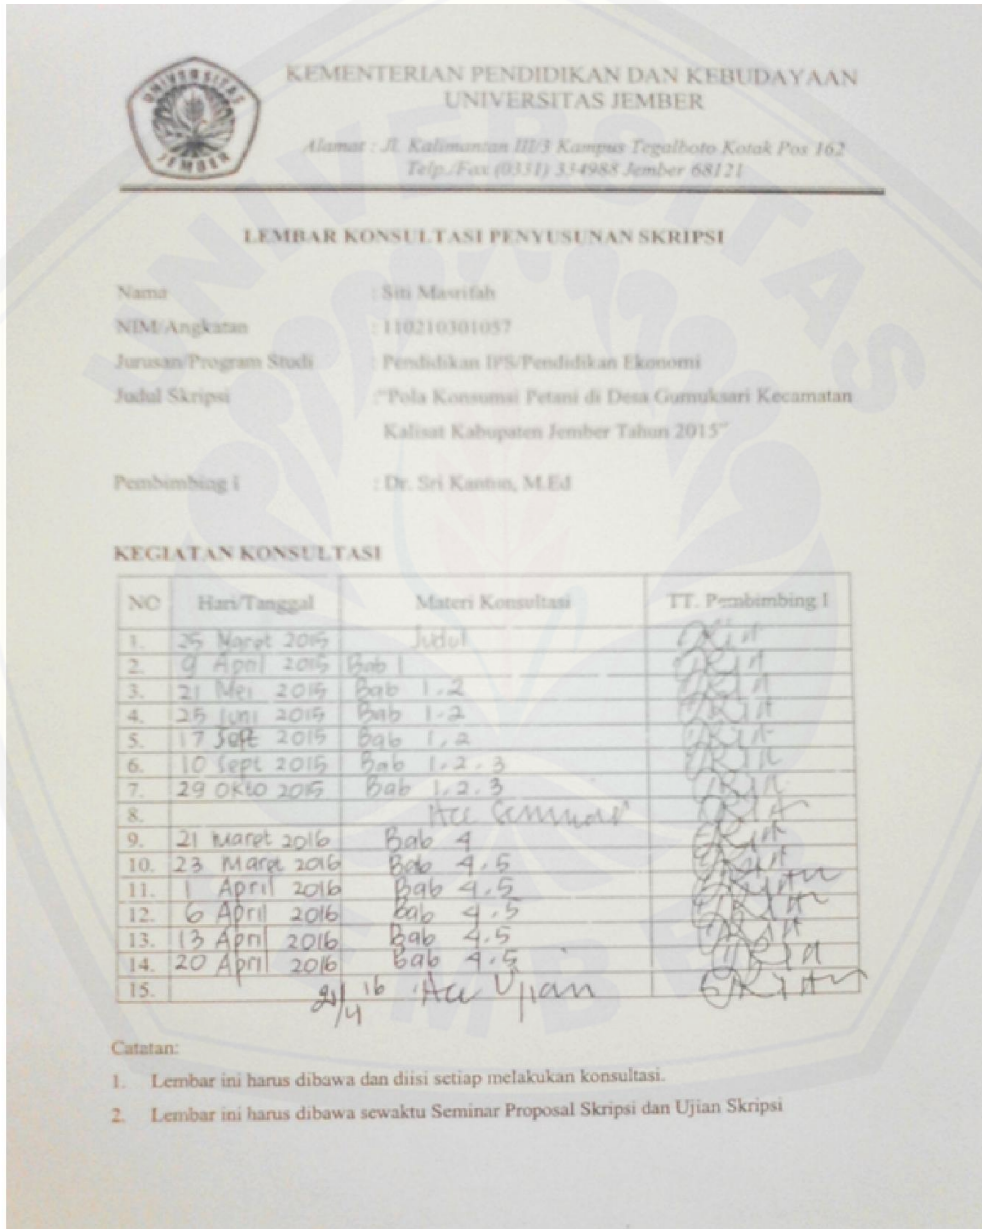 UNIVERSITAS
JEMBER
KEMENTERIAN PENDIDIKAN DAN KEBUDAYAAN
UNIVERSITAS JEMBER
Alamat : Jl. Kalimantan III/3 Kampus Tegalboto Kotak Pos 162
Telp./Fax (0331) 334988 Jember 68121
LEMBAR KONSULTASI PENYUSUNAN SKRIPSI
Nama : Siti Masrifah
NIM/Angkatan : 110210301057
Jurusan/Program Studi : Pendidikan IPS/Pendidikan Ekonomi
Judul Skripsi : "Pola Konsumsi Petani di Desa Gumuksari Kecamatan
Kalisat Kabupaten Jember Tahun 2015"
Pembimbing I : Dr. Sri Kantun, M.Ed
KEGIATAN KONSULTASI
NO Hari/Tanggal Materi Konsultasi TT. Pembimbing I
1. 25 Maret 2015 Judul
2. 9 April 2015 Bab 1
3. 21 Mei 2015 Bab 1.2
4. 25 Juni 2015 Bab 1.2
5. 17 Sept 2015 Bab 1,2
6. 10 Sept 2015 Bab 1.2.3
7. 29 Okto 2015 Bab 1.2.3
8. Acc Seminar
9. 21 Maret 2016 Bab 4
10. 23 Maret 2016 Bab 4.5
11. 1 April 2016 Bab 4.5
12. 6 April 2016 Bab 4.5
13. 13 April 2016 Bab 4.5
14. 20 April 2016 Bab 4.5
15. 21/4 16 Acc Ujian
Catatan:
1. Lembar ini harus dibawa dan diisi setiap melakukan konsultasi.
2. Lembar ini harus dibawa sewaktu Seminar Proposal Skripsi dan Ujian Skripsi